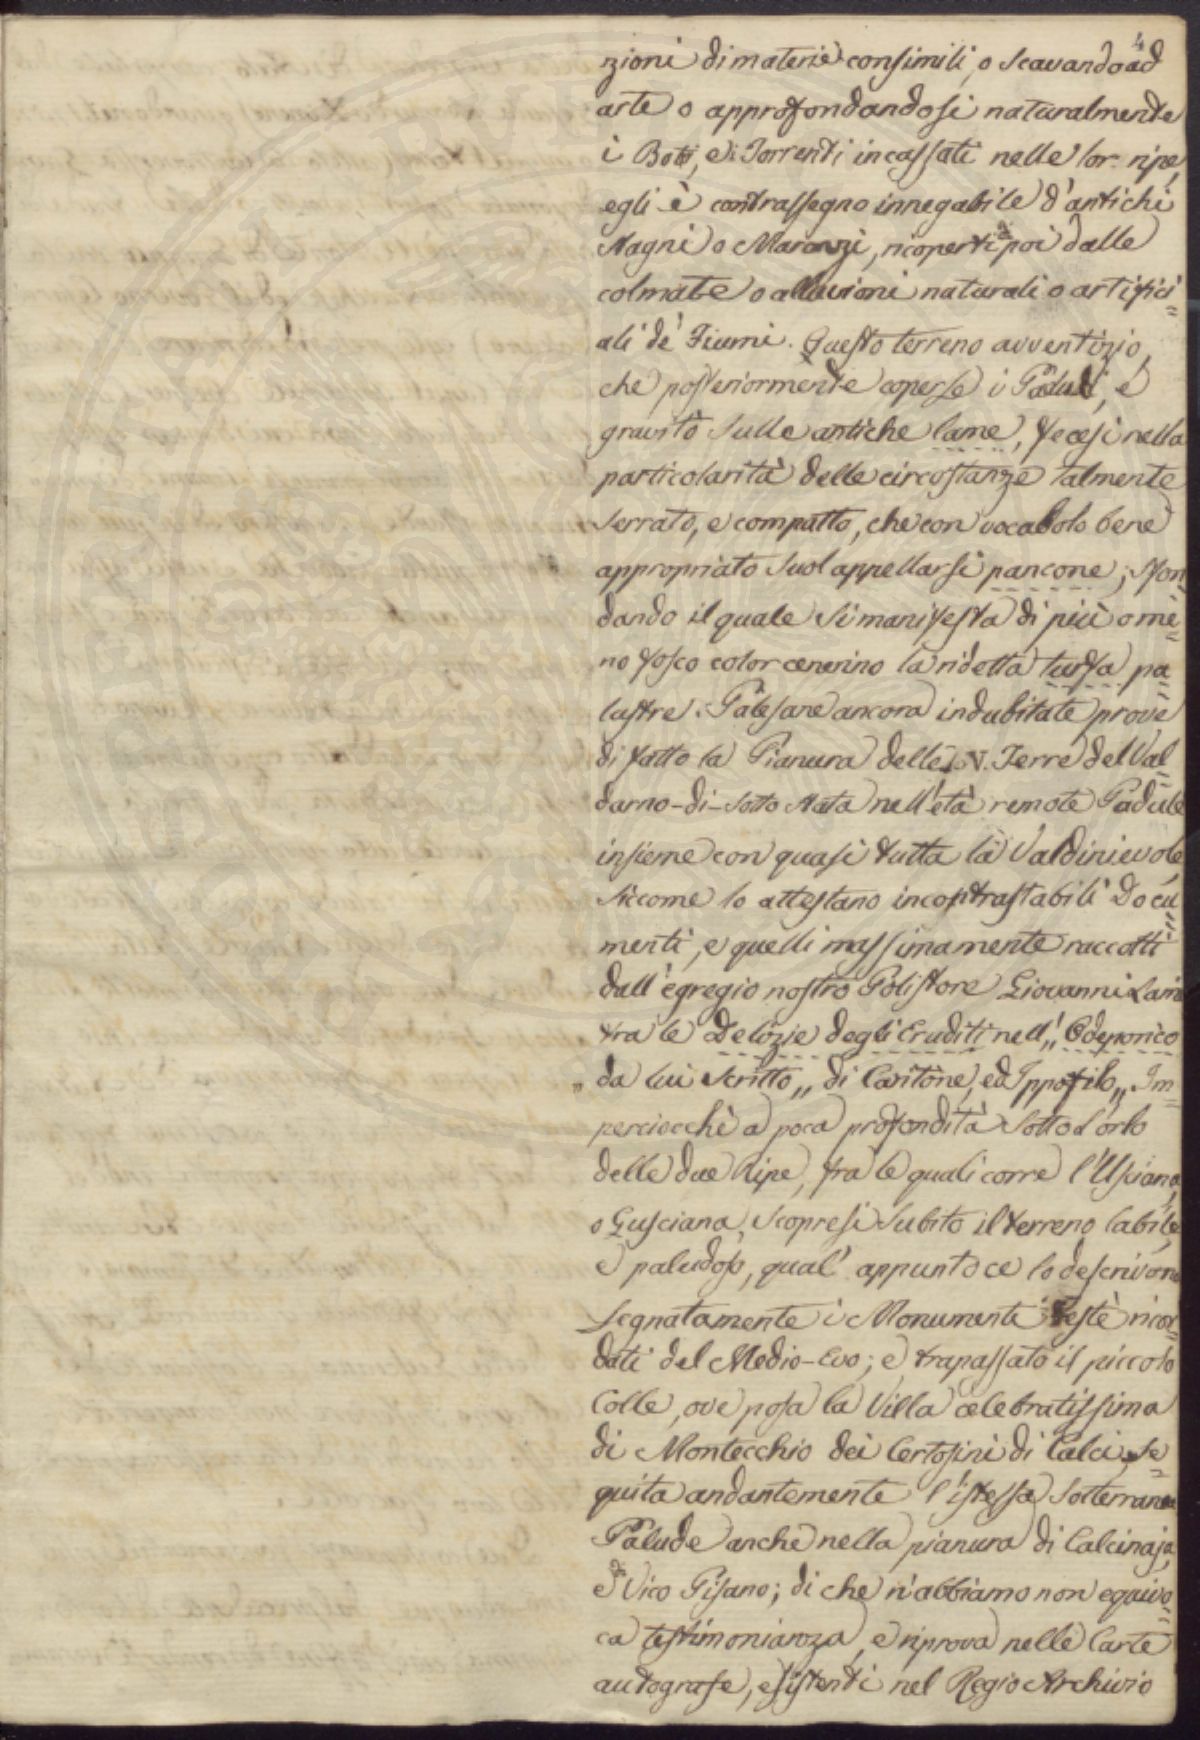 4
zioni di materie consimili, o scavando ad
arte o approfondandosi naturalmente
i Botri, e i Torrenti incassati nelle lor ripe,
egli è contrassegno innegabile d'antichi
Stagni o Marazzi, ricoperti di poi dalle
colmate o alluvioni naturali o artifici=
ali de' Fiumi. Questo terreno avventizio,
che posteriormente coperse i Paduli, e
gravitò sulle antiche lame, fecesi nella
particolarità delle circostanze talmente
serrato, e compatto, che con vocabolo bene
appropriato suol appellarsi pancone; sfon=
dando il quale si manifesta di più o me=
no fosco color cenerino la ridetta turfa pa=
lustre. Palesane ancora indubitate prove
di fatto la Pianura delle N. Terre del Val=
darno-di-sotto stata nell'età remote Padule
insieme con quasi tutta la Valdinievole
siccome lo attestano incontrastabili Docu=
menti, e quelli massimamente raccolti
dall'egregio nostro Polistore Giovanni Lami
tra le Delizie degli Eruditi nell',, Odeporico
,, da lui scritto,, di Caritone, ed Ippofilo,, Im=
perciocchè a poca profondità sotto l'orlo
delle due Ripe, fra le quali corre l'Usciana,
o Gusciana, scopresi subito il terreno labile
e paludoso, qual' appunto ce lo descrivono
segnatamente i Monumenti testè ricor=
dati del Medio-Evo; e trapassato il piccolo
Colle, ove posa la Villa celebratissima
di Montecchio dei Certosini di Calci, se=
guita andantemente l'istessa sotterranea
Palude anche nella pianura di Calcinaja,
e di Vico Pisano; di che n'abbiamo non equivo=
ca testimonianza, e riprova nelle Carte
autografe, esistenti nel Regio Archivio